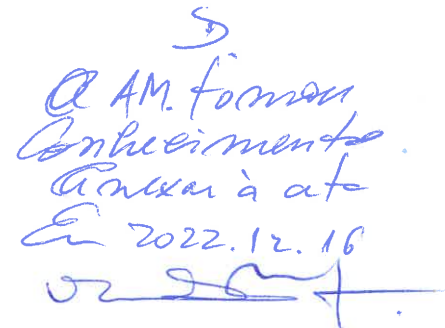 A AM. tomou
Conhecimento
Anexar à ata
Em 2022.12.16